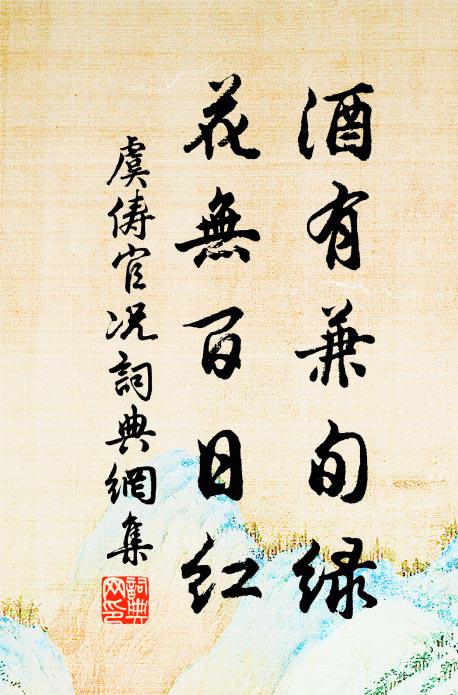 酒有兼旬绿
花無百日红
虞儔官况詞典網集
詞典网印